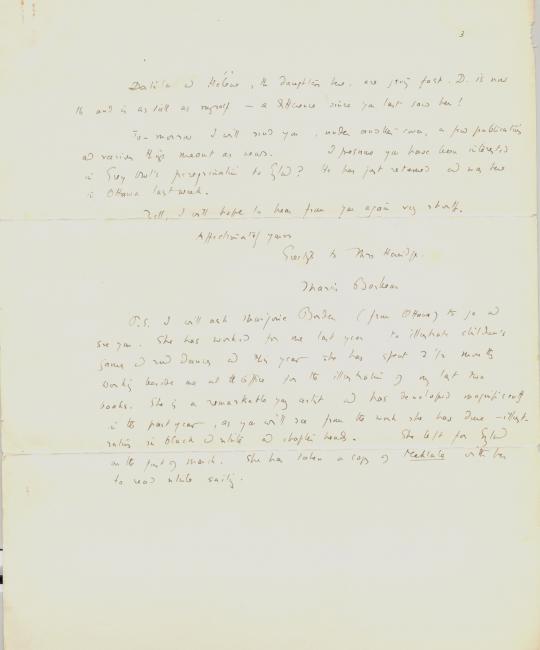 3
Dalila and Hélène, the daughters here, are going fast. D. is now
16 and is as tall as myself — a difference since you last saw her!
To-morrow I will send you, under another cover, a few publications
and various things meant as news. I presume you have been interested
in Grey Owl's peregrination to England? He has just returned and was here
in Ottawa last week.
Well, I will hope to hear from you again very shortly.
Affectionately yours
Greetings to Mrs
Marius Barbeau
P.S. I will ask Marjorie Borden (from Ottawa) to go and
see you. She has worked for me last year to illustrate children's
games and round dances and this year she has spent 2 1/2 months
working beside me at the office for the illustration of my last two
books. She is a remarkable young artist and has developed magnificently
in the past year, as you will see from the work she has done — illust-
rations in black and white and chapter heads. She left for England
on the first of March. She has taken a copy of with her
to read while sailing.